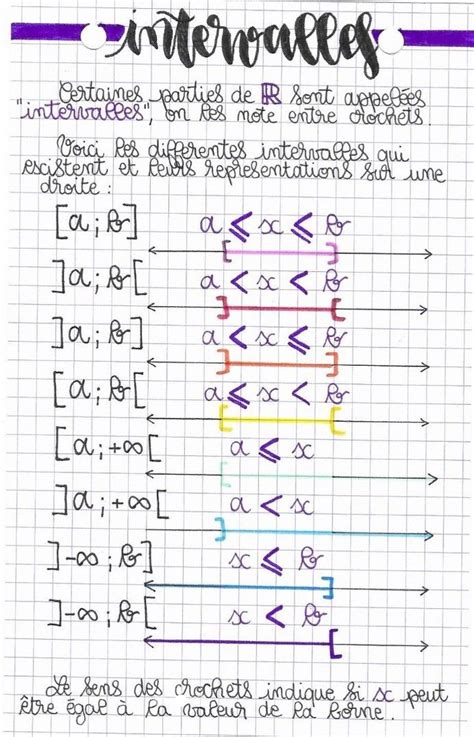 intervalles
Certaines parties de ℝ sont appelées
"intervalles", on les note entre crochets.
Voici les differentes intervalles qui
existent et leurs representations sur une
droite :
[a ; b] a ⩽ x ⩽ b
]a ; b[ a < x < b
]a ; b] a < x ⩽ b
[a ; b[ a ⩽ x < b
[a ; +∞[ a ⩽ x
]a ; +∞[ a < x
]-∞ ; b] x ⩽ b
]-∞ ; b[ x < b
Le sens des crochets indique si x peut
être égal à la valeur de la borne.